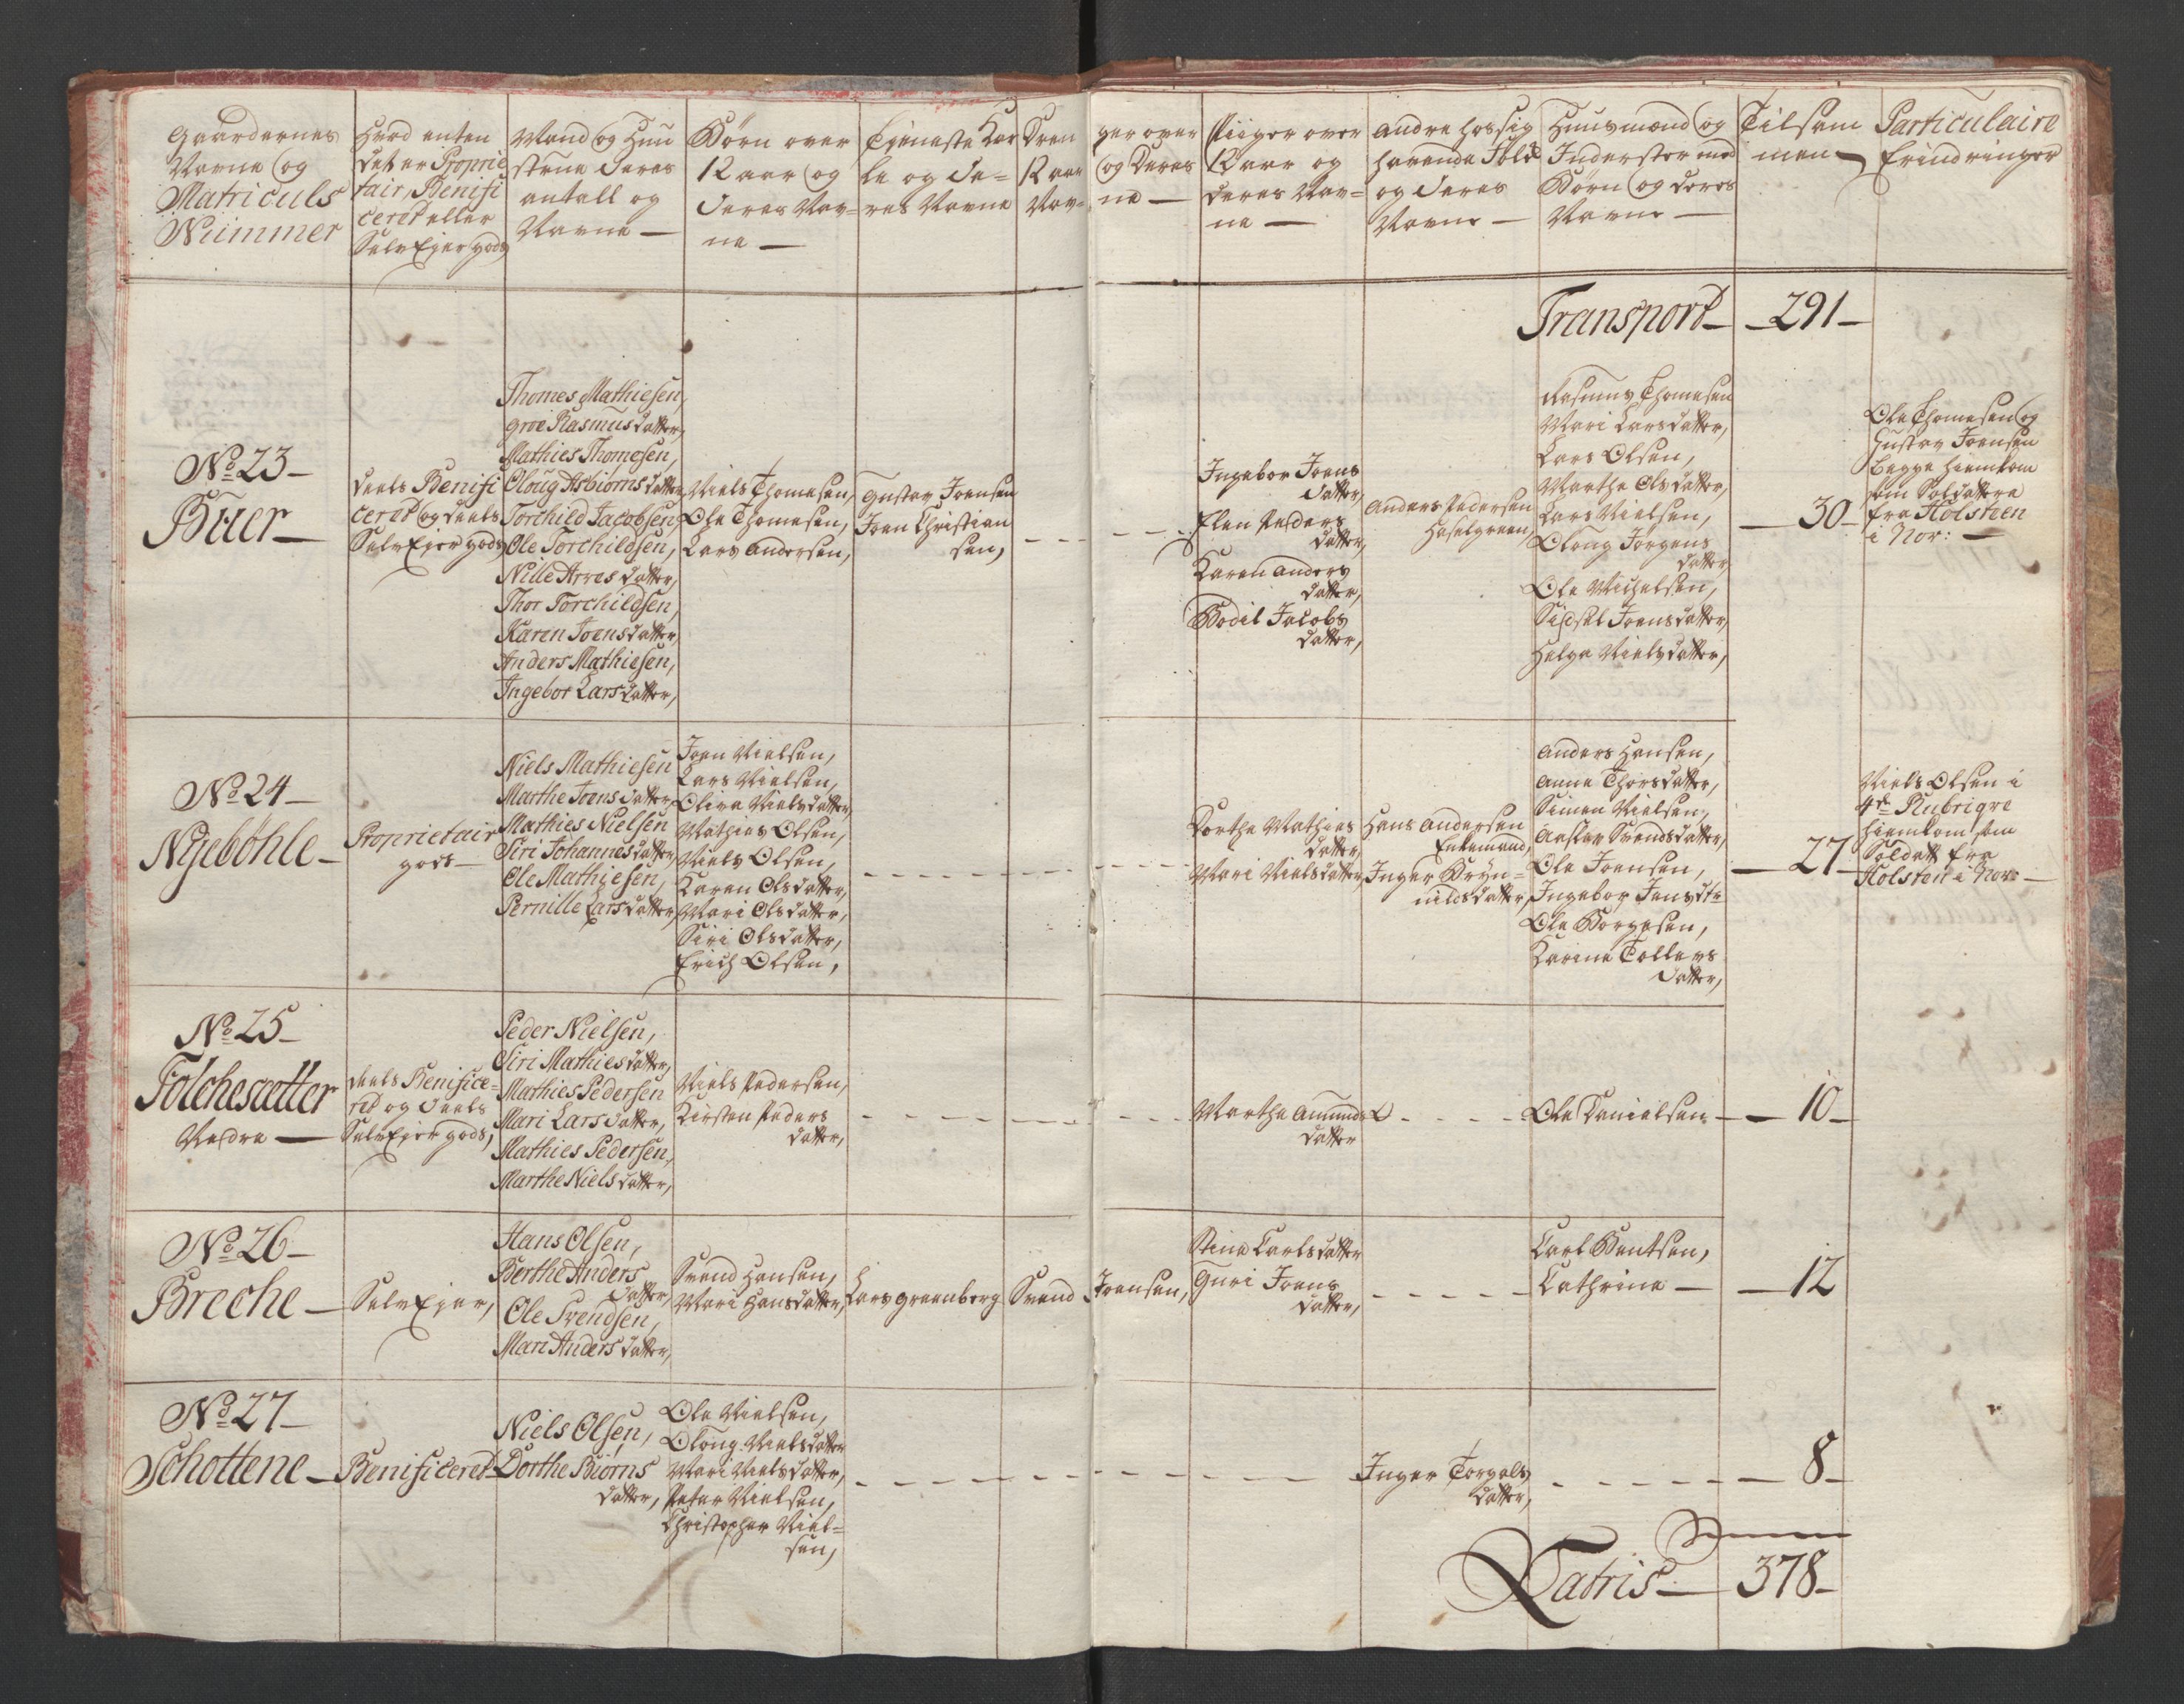 Gaardernes
Navne og
Matriculs
Nummer
Hvad enten
det er Proprie
tair, Benifi
ceret eller
SelvEjer gods
Mand og Huu
strue deres
antall og
Navne —
Børn over
12 aar og
deres Nav=
ne —
Tieneste Kar
le og de=
res Navne
Dren
12 aar
Nav=
ger over
og deres
ne —
Piiger over
12 aar og
deres Nav=
ne —
Andre hos sig
havende Folk
og deres
Navne —
Huusmænd og
Inderster med
Børn og deres
Navne —
Tilsam
men —
Particulaire
Erindringer
Transport — 291 —
No 23 —
Buer —
deels Benifi
ceret og deels
SelvEjer gods
Thomes Mathiesen,
groe Rasmusdatter,
Mathies Thomesen,
Oloug Asbiørnsdatter
Torchild Jacobsen,
Ole Torchildsen,
Nille Arresdatter,
Thor Torchildsen,
Karen Joensdatter,
Anders Mathiesen,
Ingebor Larsdatter,
Niels Thomesen,
Ole Thomesen,
Lars Andersen,
Gustav Joensen
Joen Christian
sen,
Ingebor Joens
datter,
Elen Peders
datter,
Karen Anders
datter,
Bodil Jacobs
datter,
Anders Pedersen
Haselgreen,
Rasmus Thomesen
Mari Larsdatter,
Lars Olsen,
Marthe Olsdatter,
Lars Nielsen,
Oloug Jørgens
datter,
Ole Michelsen,
Sidsel Joensdatter,
Helge Nielsdatter,
— 30 —
Ole Thomesen og
Gustav Joensen
begge hiemkom
som Soldattere
fra Holsteen
i Nov: —
No 24 —
Nyebøhle —
Proprietair
gods —
Niels Mathiesen
Marthe Joensdatter,
Mathies Nielsen
Siri Johannesdatter,
Ole Mathiesen,
Pernille Larsdatter,
Joen Nielsen,
Lars Nielsen,
Olive Nielsdatter,
Mathies Olsen,
Niels Olsen,
Karen Olsdatter,
Mari Olsdatter,
Siri Olsdatter,
Erich Olsen,
Dorthe Mathies
datter,
Mari Nielsdatter,
Hans Andersen
Enkemand,
Inger Bryn=
nildsdatter,
Anders Hansen,
Anne Thorsdatter,
Simen Nielsen,
Aaslav Svendsdatter,
Ole Joensen,
Ingebor Jensdtr
Ole Borgesen,
Karine Tollevs
datter,
— 27 —
Niels Olsen i
4de Rubriqve
hiemkom som
Soldatt fra
Holsten i Nov: —
No 25 —
Folchesætter
Nedre —
deels Benifice=
ret og deels
SelvEjer gods,
Peder Nielsen,
Siri Mathiesdatter,
Mathies Pedersen
Mari Larsdatter,
Mathies Pedersen,
Marthe Nielsdatter,
Niels Pedersen,
Kirsten Peders
datter,
Marthe Amunds
datter
Ole Danielsen
— 10 —
No 26 —
Breche —
SelvEjer,
Hans Olsen,
Berthe Anders
datter,
Ole Svendsen,
Mari Andersdatter,
Svend Hansen,
Mari Hansdatter,
Lars Greenberg
Svend Joensen,
Stine Carlsdatter
Guri Joens
datter,
Carl Bentsen,
Cathrine —
— 12
No 27 —
Schottene —
Benificeret
Niels Olsen,
Dorthe Biørns
datter,
Ole Nielsen,
Oloug Nielsdatter
Mari Nielsdatter,
Peter Nielsen,
Christopher Niel=
sen,
Inger Torgals
datter,
— 8 —
Latris — 378 —